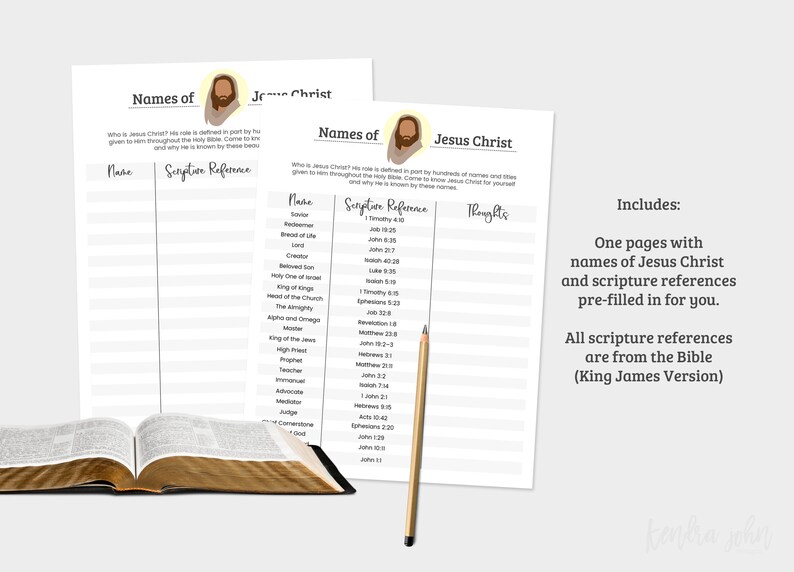 Names of Jesus Christ
Who is Jesus Christ? His role is defined in part by hu
given to Him throughout the Holy Bible. Come to kno
and why He is known by these beau
Name Scripture Reference
Names of Jesus Christ
Who is Jesus Christ? His role is defined in part by hundreds of names and titles
given to Him throughout the Holy Bible. Come to know Jesus Christ for yourself
and why He is known by these names.
Name Scripture Reference Thoughts
Savior 1 Timothy 4:10
Redeemer Job 19:25
Bread of Life John 6:35
Lord John 21:7
Creator Isaiah 40:28
Beloved Son Luke 9:35
Holy One of Israel Isaiah 5:19
King of Kings 1 Timothy 6:15
Head of the Church Ephesians 5:23
The Almighty Job 32:8
Alpha and Omega Revelation 1:8
Master Matthew 23:8
King of the Jews John 19:2-3
High Priest Hebrews 3:1
Prophet Matthew 21:11
Teacher John 3:2
Immanuel Isaiah 7:14
Advocate 1 John 2:1
Mediator Hebrews 9:15
Judge Acts 10:42
Chief Cornerstone Ephesians 2:20
of God John 1:29
John 10:11
John 1:1
Includes:
One pages with
names of Jesus Christ
and scripture references
pre-filled in for you.
All scripture references
are from the Bible
(King James Version)
kendra john